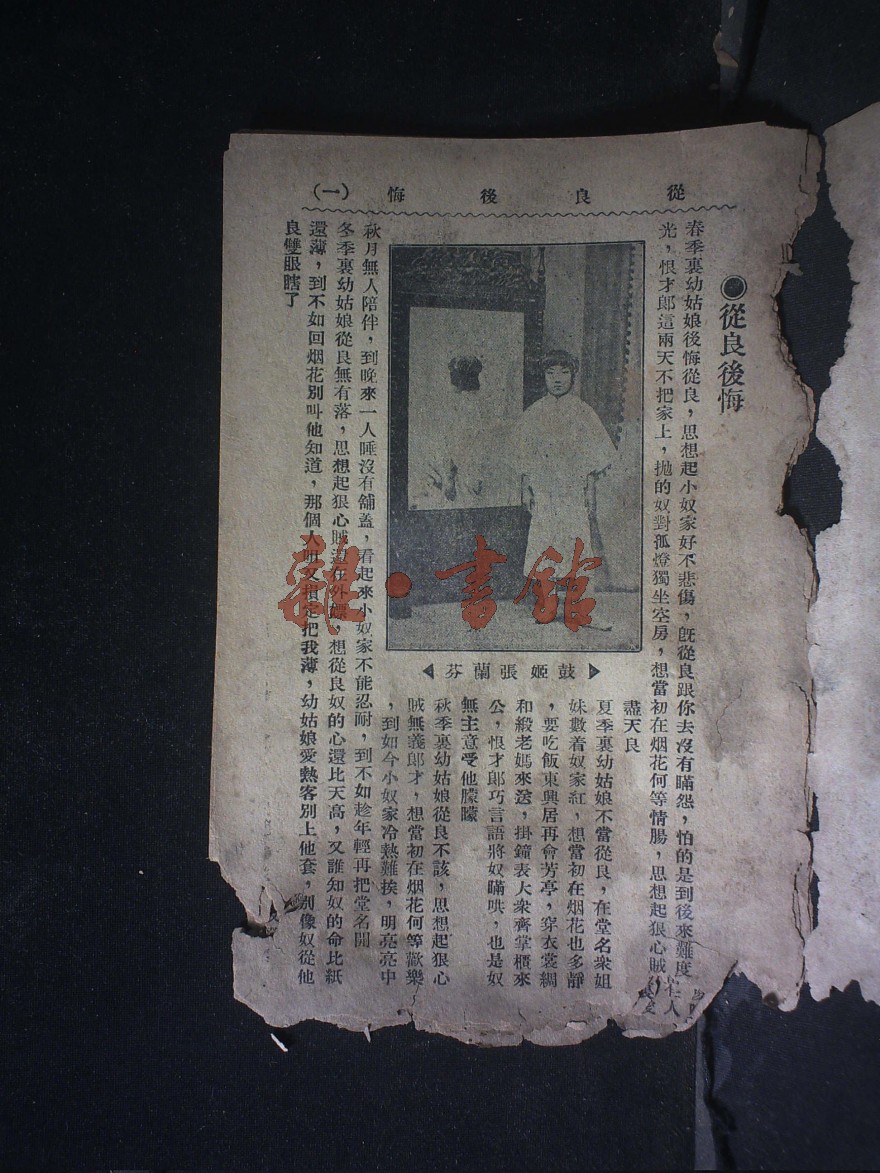 從良後悔 （一）
●從良後悔
春季裏幼姑娘後悔從良，思想起小奴家好不悲傷，旣從良跟你去沒有瞞怨，怕的是到後來難度
光，恨才郎這兩天不把家上，拋的奴對孤燈獨坐空房，想當初在烟花何等情腸，思想起狠心賊 人
盡天良
夏季裏幼姑娘不當從良，在堂名衆姐
妹數着奴家紅，想當初在烟花也多靜
，要吃飯東興居再會芳亭，穿衣裳綢
和緞老媽來送，掛鐘表大衆齊掌櫃來
公，恨才郎巧言語將奴瞞哄，也是奴
無主意受他朦朦
秋季裏幼姑娘從良不該，思想起狠心
賊無義郎才，想當初在烟花何等歡樂
，到如今小奴家冷熱難挨，明亮亮中
▶鼓姬張蘭芬◀
秋月無人陪伴，到晚來一人睡沒有舖蓋，看起來小奴家不能忍耐，到不如趁年輕再把堂名開
冬季裏幼姑娘從良無有落，思想起狠心賊 在外嫖，想從良奴的心還比天高，又誰知奴的命比紙
還薄，到不如回烟花別叫他知道，那個人 又 定把我薄，幼姑娘愛熱客別上他套，別像奴從他
良雙眼瞎了
雜·書館